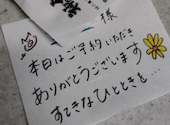 様
本日はご予約いただき
ありがとうございます
すてきなひとときを…